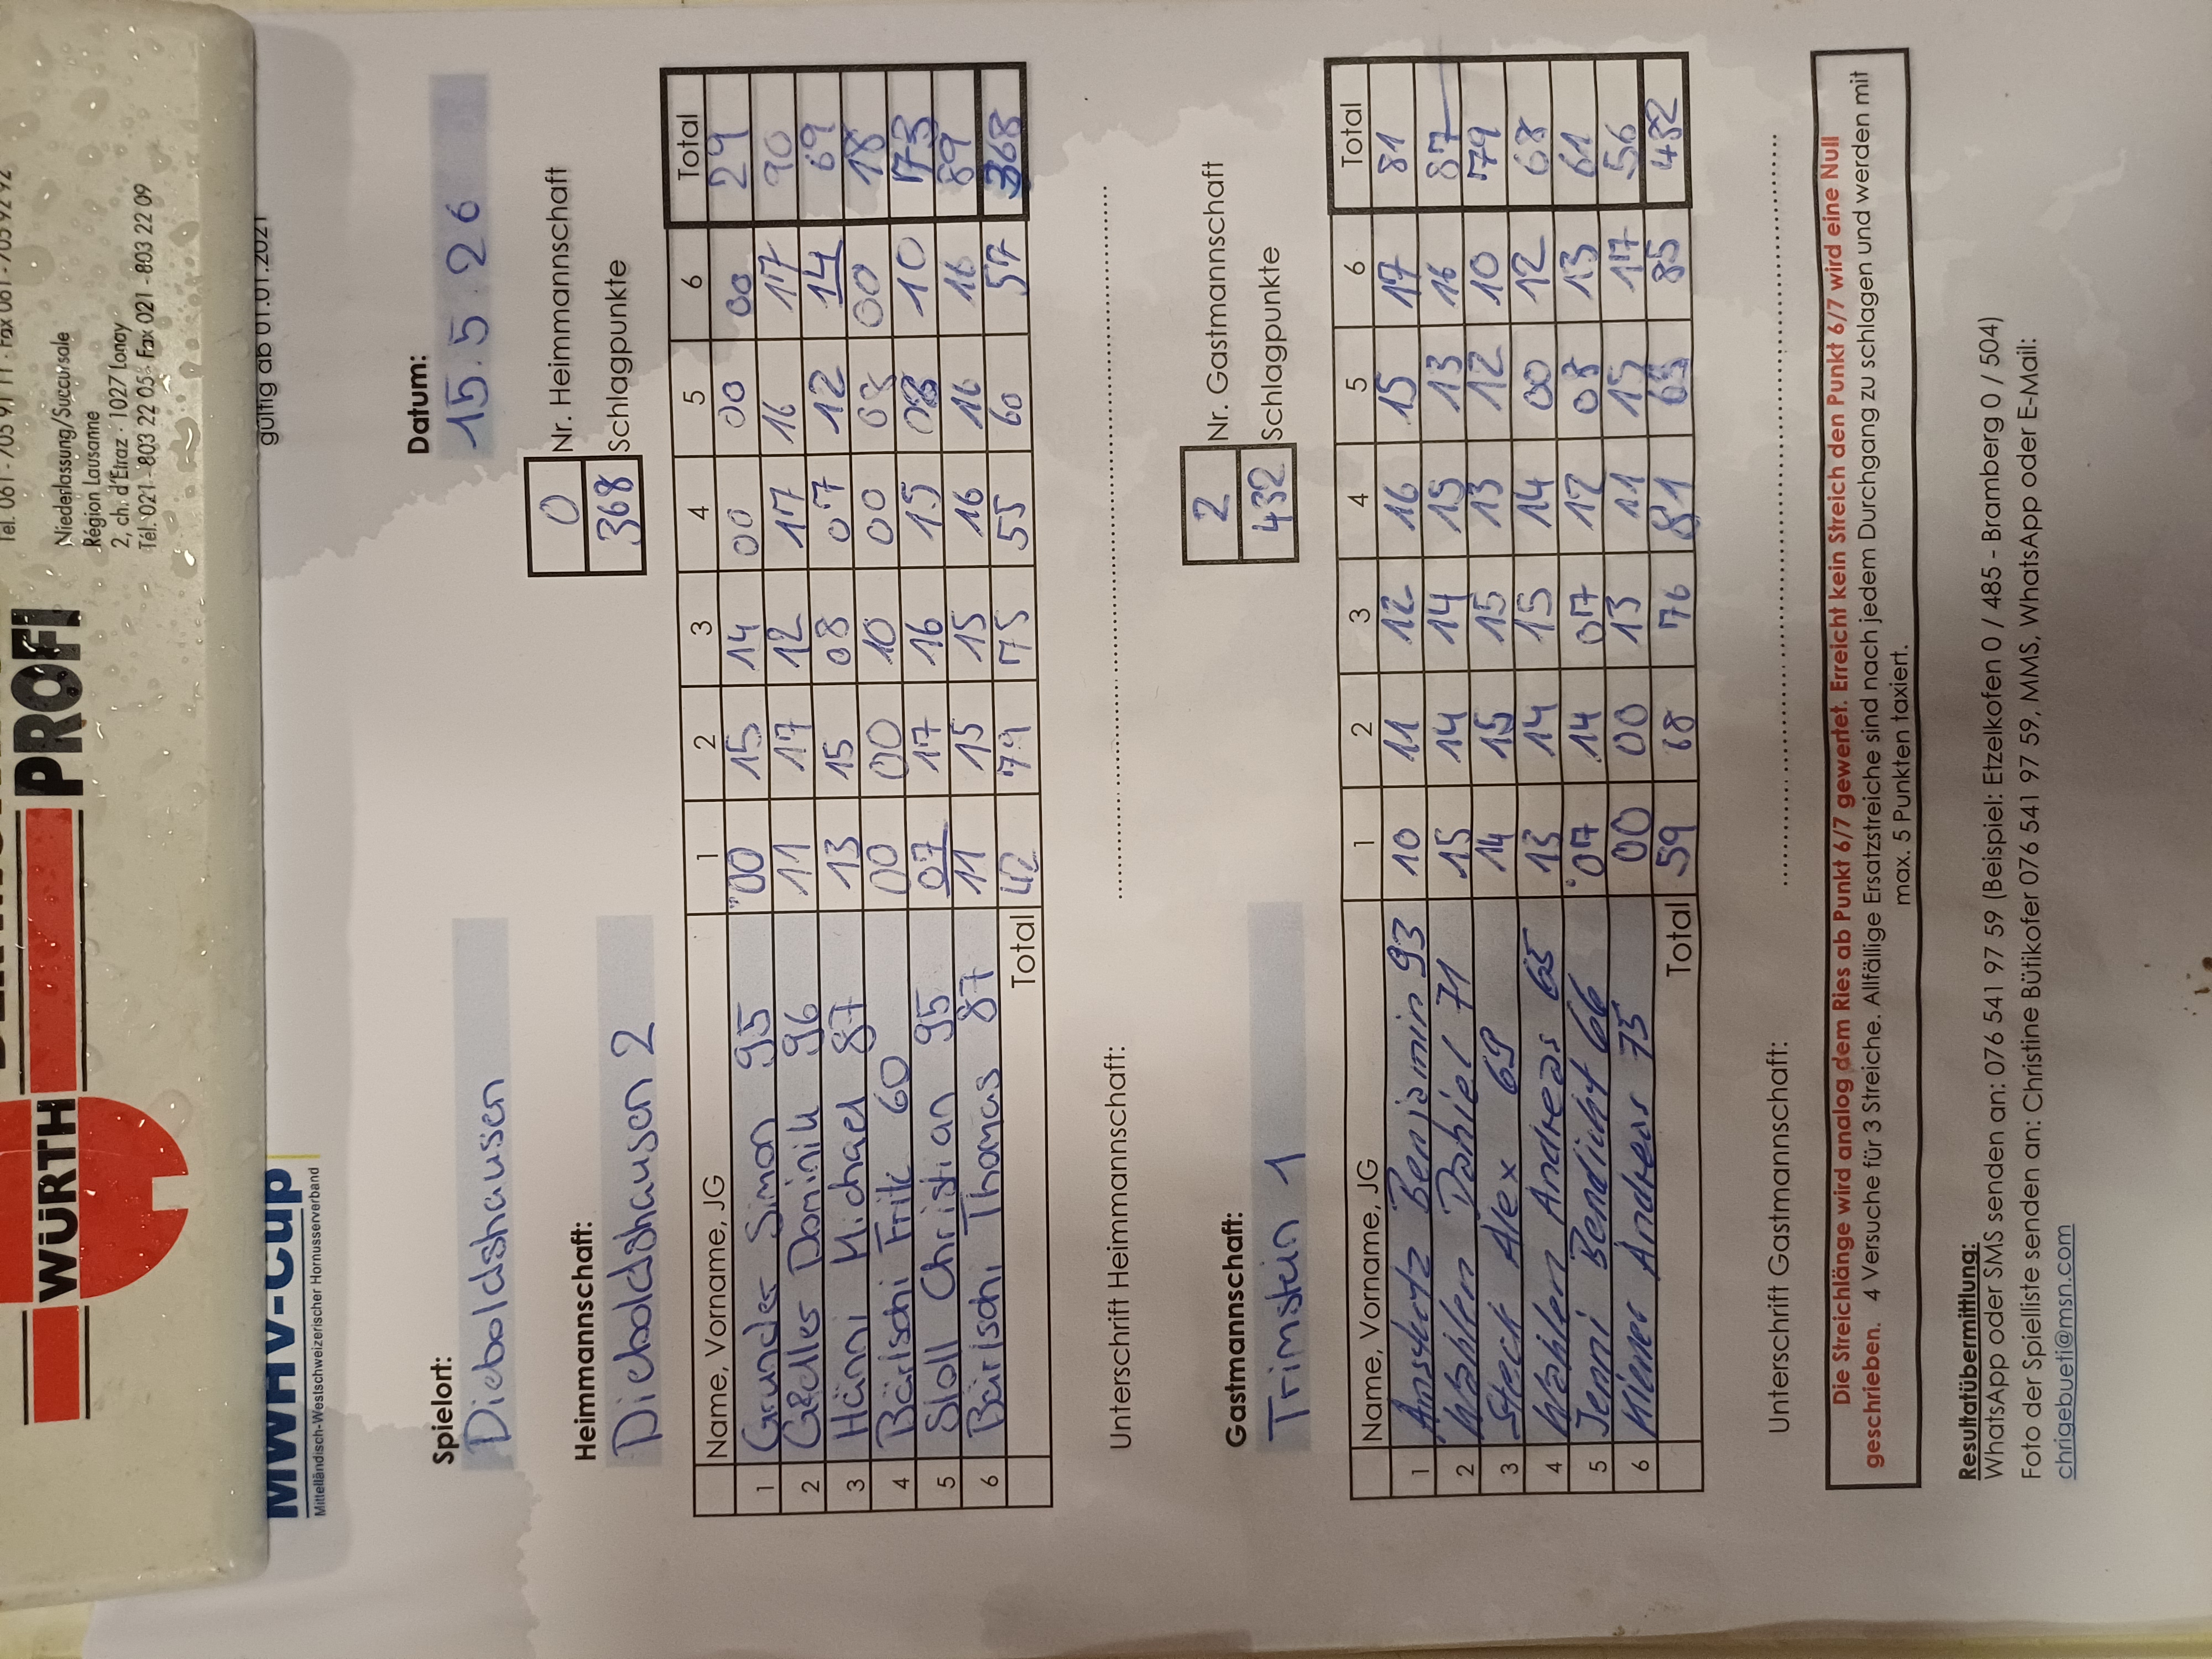 WÜRTH PROFI
Tel. 061 - 705 91 11 · Fax 061 - 705 92 92
Niederlassung/Succursale
Région Lausanne
2, ch. d'Etraz · 1027 Lonay
Tél. 021 - 803 22 05 · Fax 021 - 803 22 09
MWHV-Cup
Mittelländisch-Westschweizerischer Hornusserverband
gültig ab 01.01.2021
Spielort: Datum:
Dieboldshausen 15.5.26
Heimmannschaft: 0 Nr. Heimmannschaft
Dieboldshausen 2 368 Schlagpunkte
Name, Vorname, JG 1 2 3 4 5 6 Total
1 Grunder Simon 95 00 15 14 00 00 00 29
2 Gfeller Dominik 96 11 17 12 17 16 17 90
3 Hänni Michael 87 13 15 08 07 12 14 69
4 Bärtschi Fritz 60 00 00 10 00 08 00 18
5 Stoll Christian 95 07 17 16 15 08 10 73
6 Bärtschi Thomas 87 11 15 15 16 16 16 89
Total 42 79 75 55 60 57 368
Unterschrift Heimmannschaft:
Gastmannschaft: 2 Nr. Gastmannschaft
Trimstein 1 432 Schlagpunkte
Name, Vorname, JG 1 2 3 4 5 6 Total
1 Amstutz Benjamin 93 10 11 12 16 15 17 81
2 Wählen Daniel 71 15 14 14 15 13 16 87
3 Steck Alex 69 14 15 15 13 12 10 79
4 Wahlen Andreas 65 13 14 15 14 00 12 68
5 Jenni Bendicht 66 07 14 07 12 08 13 61
6 Kiener Andreas 75 00 00 13 11 15 17 56
Total 59 68 76 81 63 85 432
Unterschrift Gastmannschaft:
Die Streichlänge wird analog dem Ries ab Punkt 6/7 gewertet. Erreicht kein Streich den Punkt 6/7 wird eine Null
geschrieben. 4 Versuche für 3 Streiche. Allfällige Ersatzstreiche sind nach jedem Durchgang zu schlagen und werden mit
max. 5 Punkten taxiert.
Resultatübermittlung:
WhatsApp oder SMS senden an: 076 541 97 59 (Beispiel: Etzelkofen 0 / 485 - Bramberg 0 / 504)
Foto der Spielliste senden an: Christine Bütikofer 076 541 97 59, MMS, WhatsApp oder E-Mail:
chrigebueti@msn.com